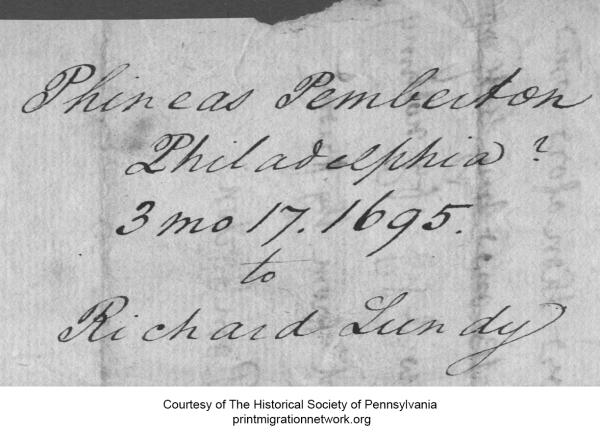 Phineas Pemberton
Philadelphia?
3 mo 17. 1695.
to
Richard Lundy
Courtesy of The Historical Society of Pennsylvania
printmigrationnetwork.org